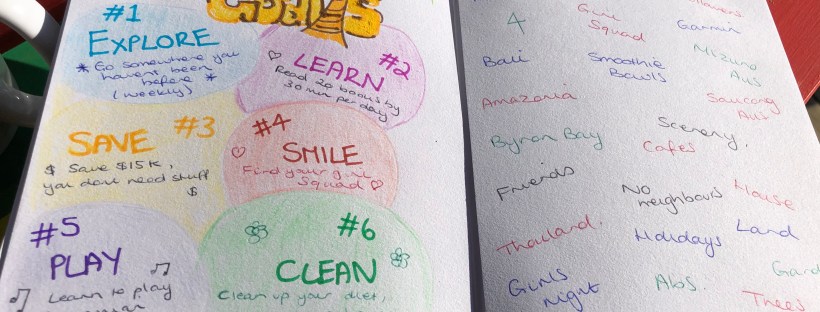 GOALS
#1
EXPLORE
* Go somewhere you
haven't been
before *
(weekly)
#2
LEARN
Read 20 books by
30 min per day
SAVE #3
$ Save $15K,
you dont need stuff
$
#4
SMILE
Find your girl
Squad
#5
PLAY
Learn to play
#6
CLEAN
Clean up your diet,
4 Girl
Squad Garmin
Bali Smoothie
Bowls Mizuno
Aus
Amazonia Saucony
Aus
Byron Bay Scenery.
Cafes
Friends No
neighbours House
Thailand. Holidays Land
Girls
night Abs. Gard
Trees